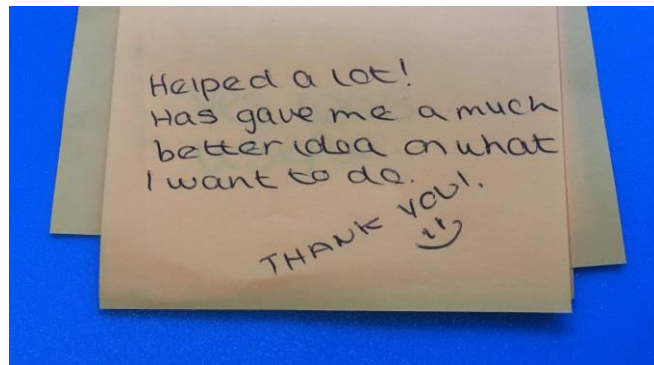 Helped a lot!
Has gave me a much
better idea on what
I want to do.
THANK YOU!